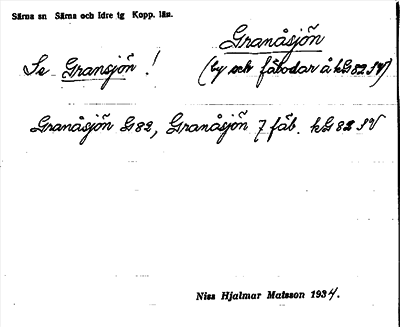 Särna sn Särna och Idre tg Kopp. län.
Granåsjön
Se Gransjön! (by och fäbodar å kG 82 SV)
Granåsjön G82, Granåsjön 7 fäb. kG 82 SV
Niss Hjalmar Matsson 1934.